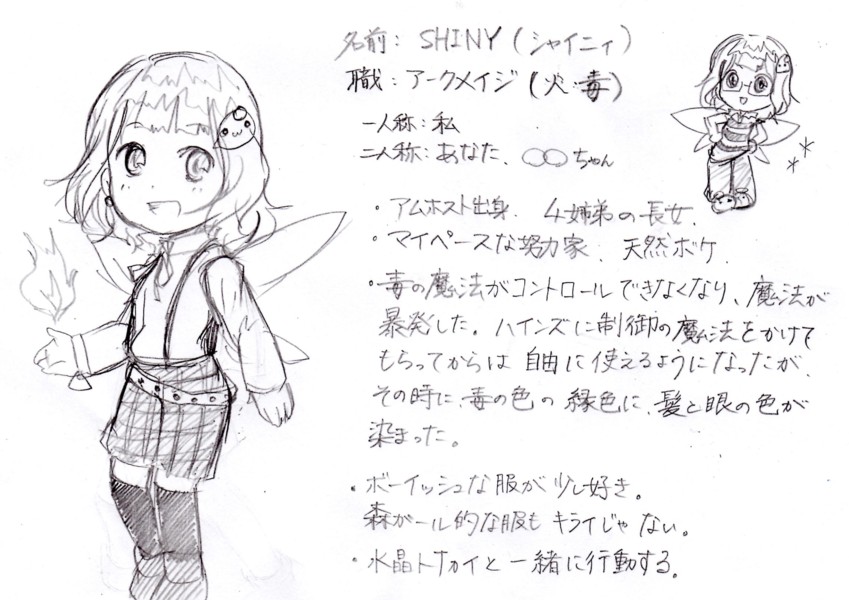 名前: SHINY (シャイニィ)
職: アークメイジ (火・毒)
一人称: 私
二人称: あなた、○○ちゃん
・アムホスト出身. 4姉弟の長女.
・マイペースな努力家、天然ボケ.
・毒の魔法がコントロールできなくなり、魔法が
暴発した。ハインズに制御の魔法をかけて
もらってからは自由に使えるようになったが、
その時に、毒の色の緑色に、髪と眼の色が
染まった。
・ボーイッシュな服が少し好き。
森ガール的な服もキライじゃない。
・水晶トナカイと一緒に行動する。